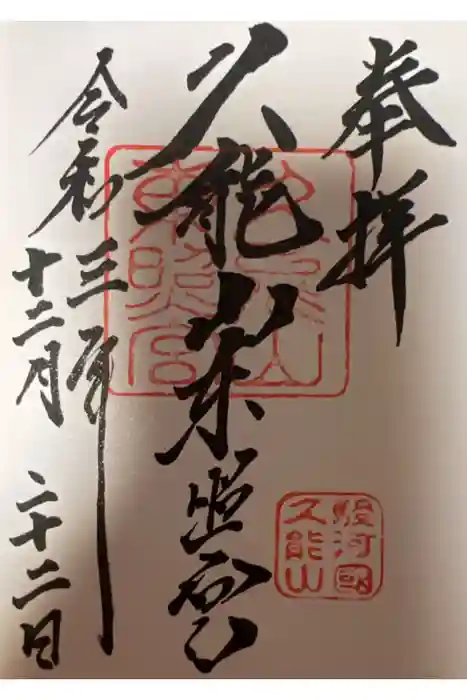 奉拝
久能山東照宮
令和三年
十二月二十二日
久能山
東照宮
駿河國
久能山